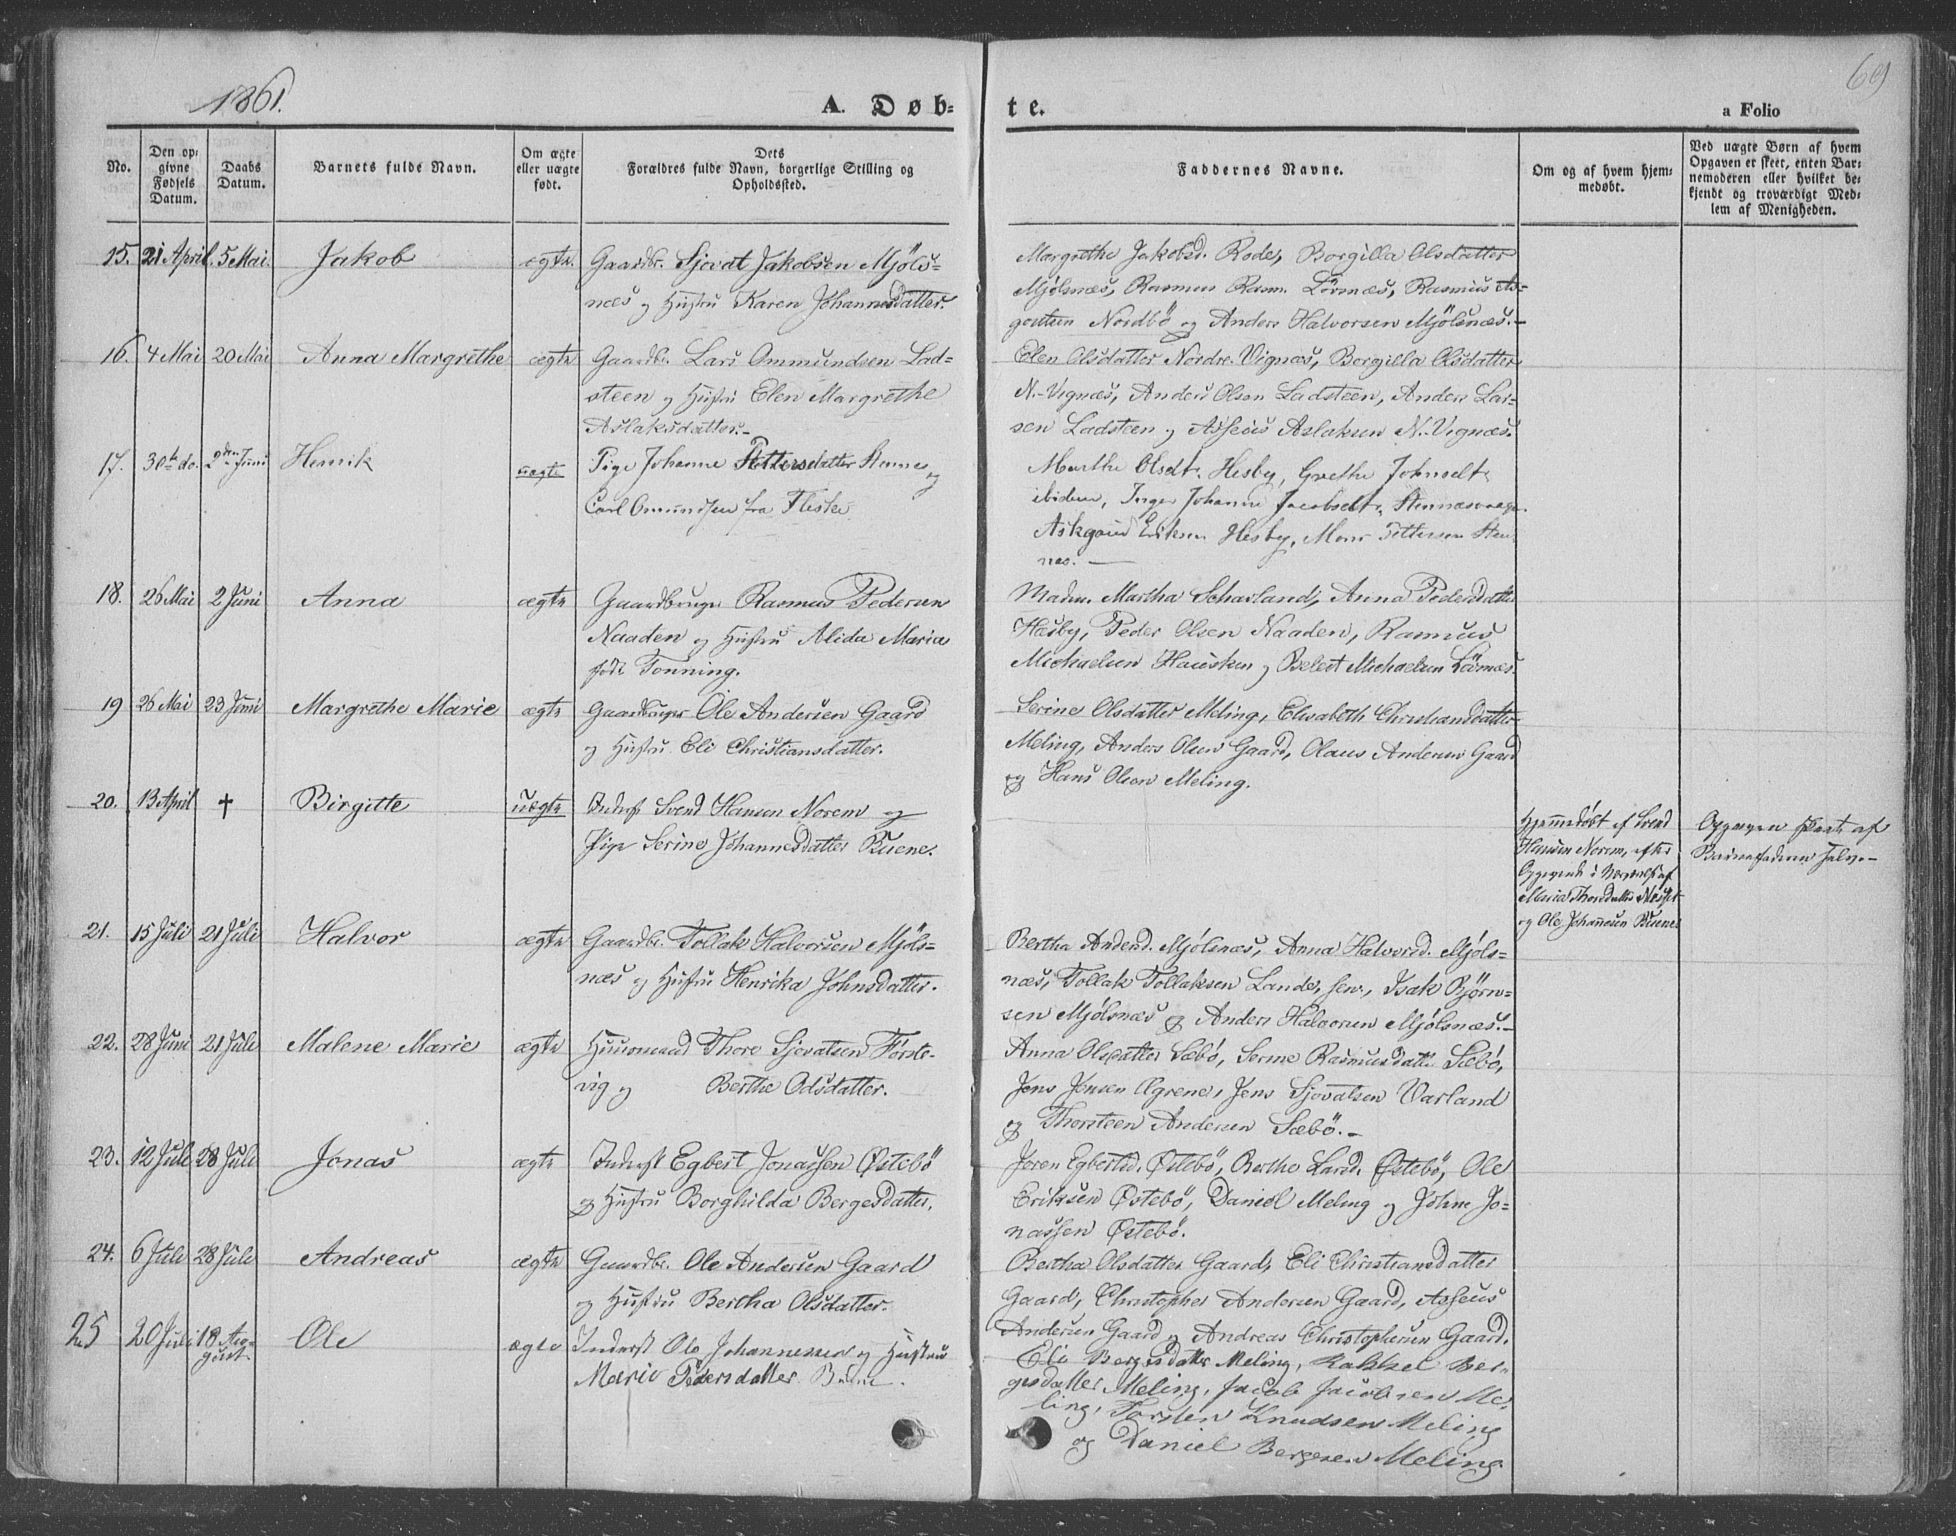 1861.
69
A. Døb=
te.
a Folio
No.
Den op=
givne
Fødsels
Datum.
Daabs
Datum.
Barnets fulde Navn.
Om ægte
eller uægte
født.
Dets
Forældres fulde Navn, borgerlige Stilling og
Opholdssted.
Faddernes Navne.
Om og af hvem hjem=
medøbt.
Ved uægte Børn af hvem
Opgaven er skeet, enten Bar=
nemoderen eller hvilket be=
kjendt og troværdigt Med=
lem af Menigheden.
15. 21 April. 5 Mai. Jakob ægte. Gaardbr. Sjovat Jakobsen Mjöls=
næs og Hustru Karen Johannesdatter.
Margrethe Jakobsd. Rode, Borgilla Olsdatter
Mjølsnæs, Rasmus Rasm. Lørnæs, Rasmus As=
goutsen Nordbö og Anders Halvorsen Mjölsnæs.-
16. 4 Mai 20 Mai Anna Margrethe ægte Gaardbr. Lars Ommundsen Lad=
steen og Hustru Elen Margrethe
Aslaksdatter.-
Elen Olsdatter Nordre Vignæs, Borgilla Olsdatter
N.-Vignæs, Anders Olsen Ladsteen, Anders Lar=
sen Ladsteen og Asseus Aslaksen N.-Vignæs.
17. 30te do. 2den Juni Henrik uægte Pige Johanne Pettersdatter Stennes og
Carl Omundsen fra Fliske
Marthe Olsdt. Hesby, Grethe Johnsdt.
ibidem, Inger Johanne Jacobsdt. Stennæs
Askgout Eriksen Hesby, Mons Pettersen Sten
næs. —
18. 26 Mai 2 Juni Anna ægte Gaardbruger Rasmus Pedersen
Naaden og Hustru Alida Maria
født Tonning.
Madm. Martha Scharland, Anna Pedersdatter
Hesby, Peder Olsen Naaden, Rasmus
Michaelsen Hausken og Belest Michaelsen Lörnæs.
19 26 Mai 23 Juni Margrethe Marie ægte Gaardbruger Ole Andersen Gaard
og Hustru Eli Christiansdatter.
Serine Olsdatter Meling, Elisabeth Christiansdatter
Meling, Anders Olsen Gaard, Olaus Andersen Gaard
og Hans Olsen Meling.
20. 13 April † Birgitte uægte Inderst Svend Hansen Norem og
Pige Serine Johannesdatter Buene.
Hjemmedöbt af Svend
Hansen Norem, efter
Opgivende i Nærværelse af
Maria Thorsdatter Næsset
og Ole Johannesen Buene
Opgaven skeet af
Barnefaderen selv.-
21. 15 Juli 21 Juli Halvor ægte Gaardbr. Tollak Halvorsen Mjöls=
næs og Hustru Henrika Johnsdatter.
Bertha Andersd. Mjølsnæs, Anna Halvorsd. Mjøls=
næs, Tollak Tollaksen Lande, sen., Isak Bjørn=
sen Mjølsnæs og Anders Halvorsen Mjølsnæs.-
22. 28 Juni 21 Juli Malene Marie ægte Huusmand Thore Sjovatsen Förste-
vig og Berthe Odsdatter.
Anna Olsdatter Sæbö, Serine Rasmusdatter Sæbö,
Jens Jensen Øgrene, Jens Sjovatsen Varland
og Thorsteen Andersen Sæbö.-
23. 12 Juli 28 Juli Jonas ægte Inderst Egbert Jonassen Østebö
og Hustru Borghilda Bergesdatter.
Joren Egbertsd. Østebö, Berthe Larsd. Østebö, Ole
Eriksen Østebö, Daniel Meling og Johne Jo=
nassen Østebö.
24. 6 Juli 28 Juli Andreas ægte Gaardbr. Ole Andersen Gaard
og Hustru Bertha Olsdatter.
Bertha Olsdatter Gaard, Eli Christiansdatter
Gaard, Christopher Andersen Gaard, Asseus
Andersen Gaard og Andreas Christophersen Gaard.
25 20 Juli 18 Au=
gust Ole ægte Inderst Ole Johannesen og Hustru
Marie Pedersdatter Buene.
Eli Bergesdatter Meling, Rakkel Ber=
gesdatter Meling, Jacob Jacobsen Me=
ling, Torsten Knudsen Meling
og Daniel Bergesen Meling